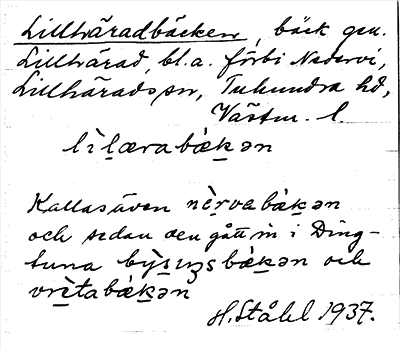 Lillhäradbäcken, bäck gen.
Lillhärad, bl.a. förbi Nedervi,
Lillhärads sn, Tuhundra hd,
Västm. l.
lìlærabæ̀kən
Kallas även nèrvabæ̀kən
och sedan den gått in i Ding-
tuna och
vrètabæ̀kən
H. Ståhl 1937.